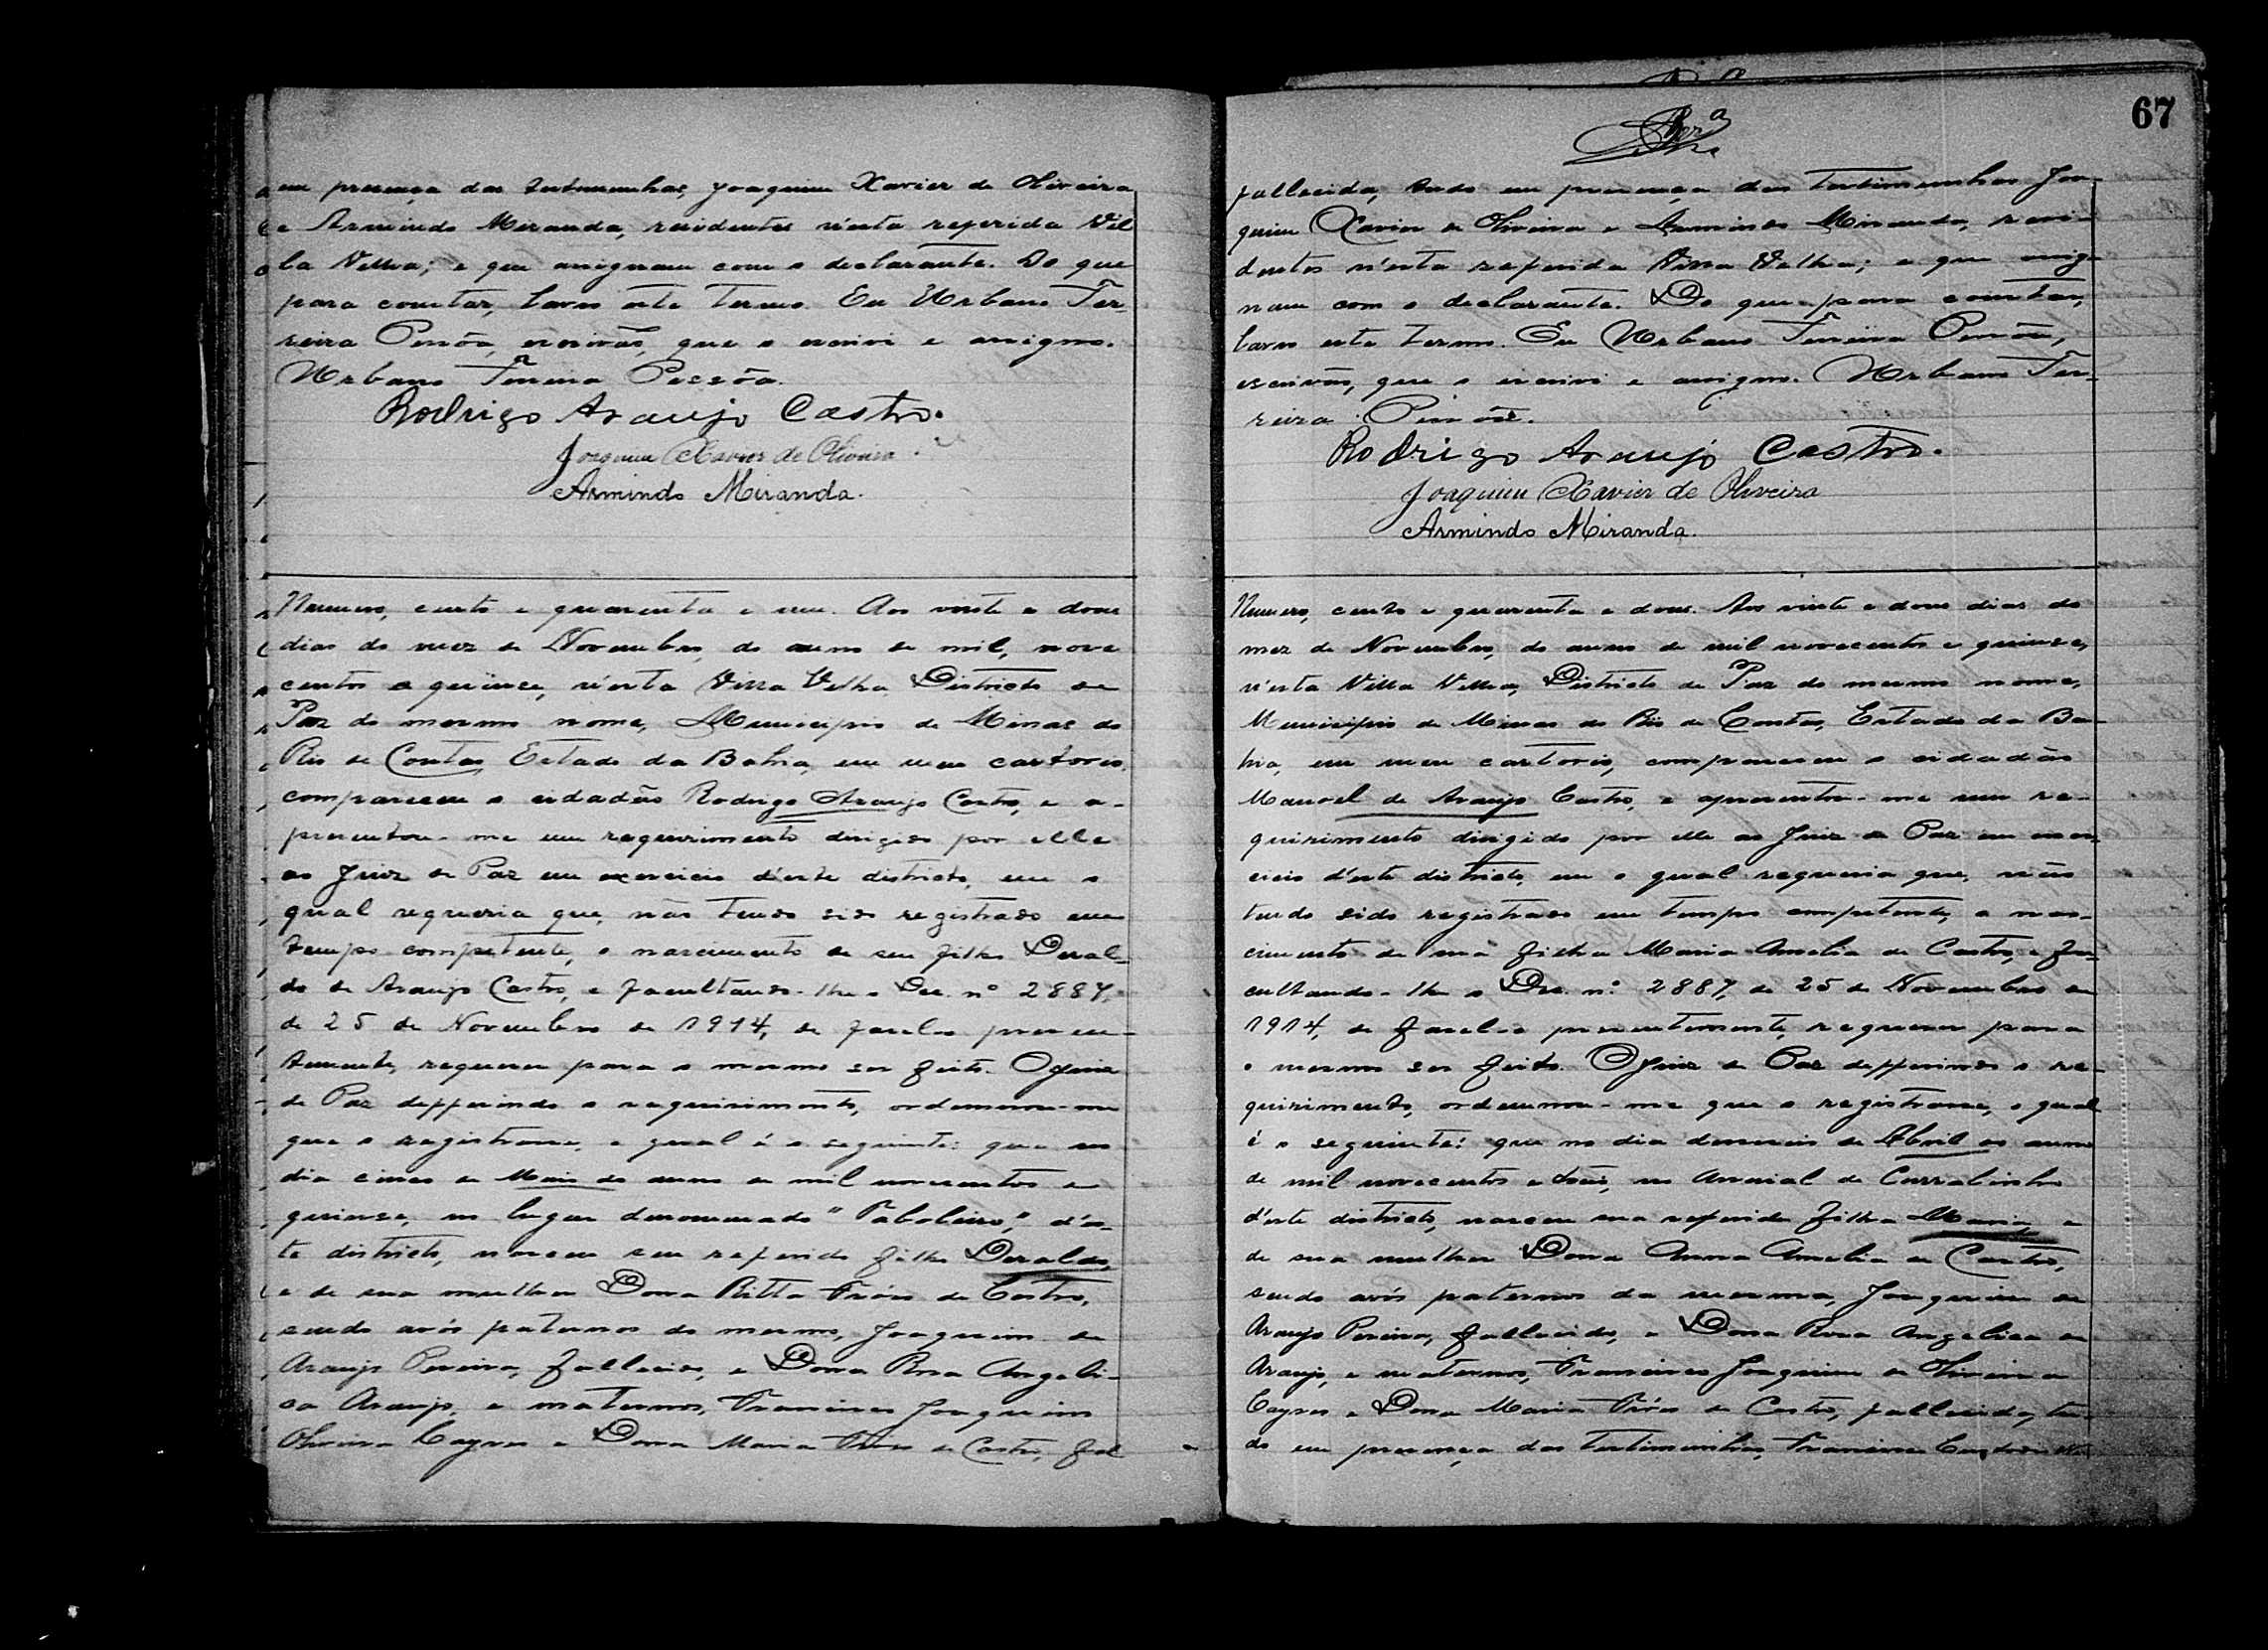 em presença das testemunhas, Joaquim Xavier de Oliveira
e Armindo Miranda, residentes n'esta referida Vil
la Velha; e que assignam com o declarante. Do que
para constar, lavro este termo. Eu Urbano Fer-
reira Pessôa, escrivão, que o escrivi e assigno.
Urbano Ferreira Pessôa.
Rodrigo Araujo Castro.
Joaquim Xavier de Oliveira.
Armindo Miranda.
Numero, cento e quarenta e um. Aos vinte e dous
dias do mez de Novembro, do anno de mil, nove
centos e quinze, n'esta Villa Velha, Districto de
Paz do mesmo nome, Municipio de Minas do
Rio de Contas, Estado da Bahia, em meu cartorio,
compareceu o cidadão Rodrigo Araujo Castro, e a-
presentou-me um requerimento dirigido por elle
ao Juiz de Paz em exercicio d'este districto, em o
qual requeria que, não tendo sido registrado em
tempo competente, o nascimento de seu filho Deral-
do de Araujo Castro, e facultando-lhe o Dec. nº 2887,
de 25 de Novembro de 1914, de fazel-o presen-
temente, requerer para o mesmo ser feito. O Juiz
de Paz defferindo o requirimento, ordennou-me
que o registrasse, o qual é o seguinte: que no
dia cinco de Maio do anno de mil novecentos e
quinze, no lugar denominado "Taboleiro", d'es-
te districto, nasceu seu referido filho Deraldo,
e de sua mulher Dona Ritta Fróes de Castro,
sendo avós paternos do mesmo, Joaquim de
Araujo Pereira, fallecido, e Dona Rosa Angeli-
ca Araujo, e maternos, Francisco Joaquim
Oliveira Cayres e Dona Maria Fróes de Castro, fal
67
fallecida, tudo em presença das testimunhas Joa-
quim Xavier de Oliveira e Armindo Miranda, resi-
dentes n'esta referida Villa Velha; e que assig-
nam com o declarante. Do que para constar,
lavro este termo. Eu Urbano Ferreira Pessôa,
escrivão, que o escrivi e assigno. Urbano Fer-
reira Pessôa.
Rodrigo Araujo Castro.
Joaquim Xavier de Oliveira
Armindo Miranda.
Numero, cento e quarenta e dous. Aos vinte e dous dias do
mez de Novembro, do anno de mil novecentos e quinze,
n'esta Villa Velha, Districto de Paz do mesmo nome,
Municipio de Minas do Rio de Contas, Estado da Ba-
hia, em meu cartorio, compareceu o cidadão
Manoel de Araujo Castro, e apresentou-me um re-
quirimento dirigido por elle ao Juiz de Paz em exer-
cicio d'este districto, em o qual requeria que, não
tendo sido registrado em tempo competente, o nas-
cimento de sua filha Maria Amelia de Castro, e fa-
cultando-lhe o Dec. nº 2887, de 25 de Novembro de
1914, de fazel-o presentemente, requerer para
o mesmo ser feito. O Juiz de Paz defferindo o re-
quirimento, ordennou-me que o registrasse, o qual
é o seguinte: que no dia de Abril do anno
de mil novecentos e no Arraial de Curralinho
d'este districto, nasceu sua referida filha Maria, e
de sua mulher Dona Anna Amelia de Castro,
sendo avós paternos da mesma, Joaquim de
Araujo Pereira, fallecido, e Dona Rosa Angelica de
Araujo, e maternos, Francisco Joaquim de Oliveira
Cayres e Dona Maria Fróes de Castro, fallecida, tu-
do em presença das testimunhas, Francisco